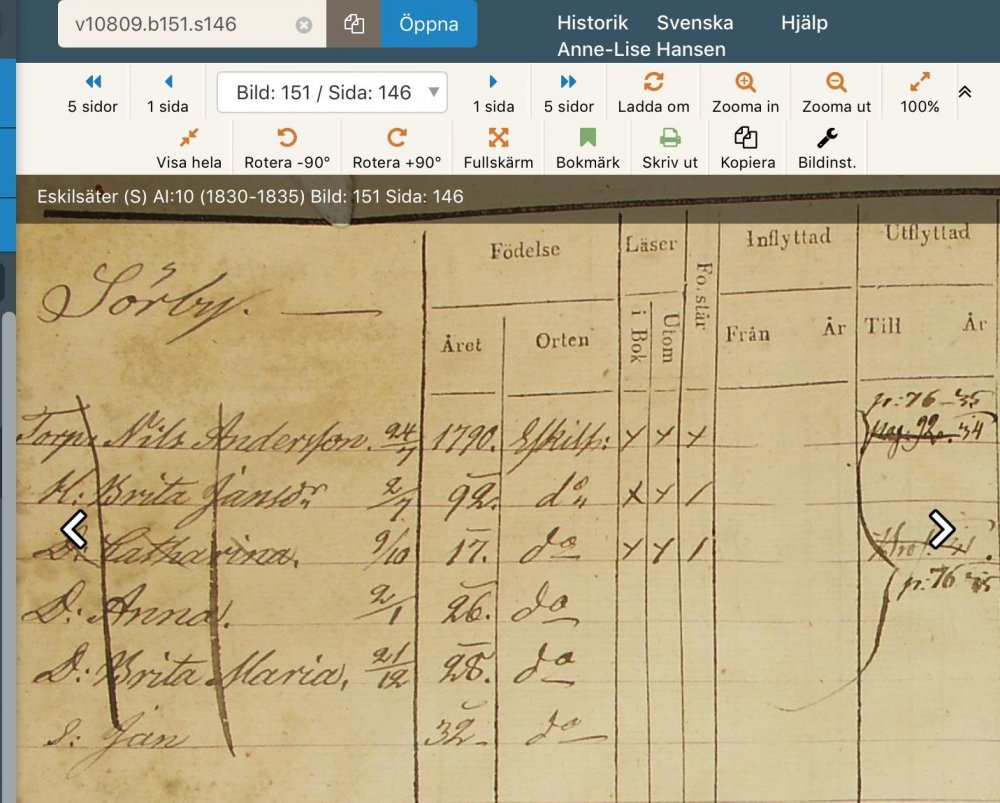 v10809.b151.s146 Öppna Historik Svenska Hjälp
Anne-Lise Hansen
5 sidor 1 sida Bild: 151 / Sida: 146 1 sida 5 sidor Ladda om Zooma in Zooma ut 100%
Visa hela Rotera -90° Rotera +90° Fullskärm Bokmärk Skriv ut Kopiera Bildinst.
Eskilsäter (S) AI:10 (1830-1835) Bild: 151 Sida: 146
Sörby.
Födelse Läser Fo. står Inflyttad Utflyttad
Året Orten i Bok Utom Från År Till År
p: 76-35
Torp. Nils Andersson. 24/7 1790. Eskils: pag. 92. 34
H: Brita Jansdr 2/7 92. do
D: Catharina. 9/10 17. do
D: Anna. 2/1 26. do p: 76 35
D: Brita Maria, 21/12 28. do
S: Jan 32. do